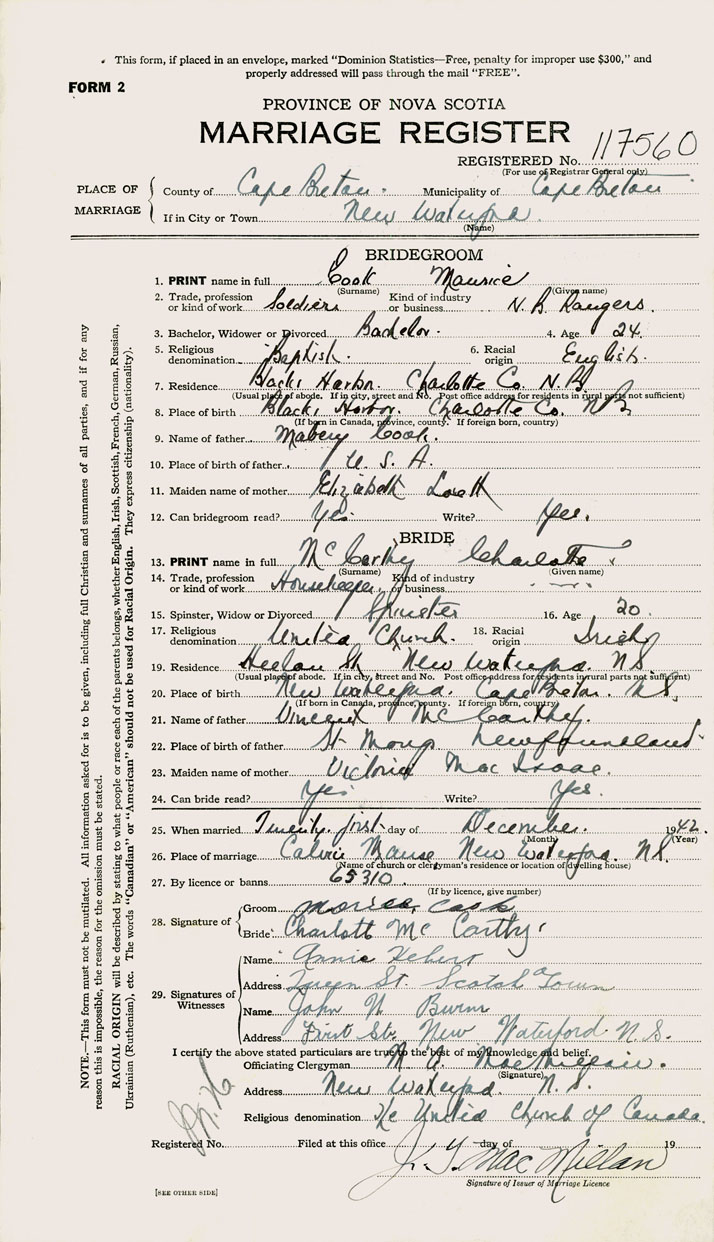 This form, if placed in an envelope, marked "Dominion Statistics—Free, penalty for improper use $300," and
properly addressed will pass through the mail "FREE".
FORM 2
PROVINCE OF NOVA SCOTIA
MARRIAGE REGISTER
REGISTERED No. 117560
(For use of Registrar General only)
PLACE OF MARRIAGE
County of Cape Breton. Municipality of Cape Breton
If in City or Town New Waterford.
(Name)
BRIDEGROOM
1. PRINT name in full Cook Maurice
(Surname) (Given name)
2. Trade, profession or kind of work Soldier Kind of industry or business N. B. Rangers.
3. Bachelor, Widower or Divorced Bachelor. 4. Age 24.
5. Religious denomination Baptist. 6. Racial origin English.
7. Residence Blacks Harbor. Charlotte Co. N.B.
(Usual place of abode. If in city, street and No. Post office address for residents in rural parts not sufficient)
8. Place of birth Blacks Harbor. Charlotte Co. N.B.
(If born in Canada, province, county. If foreign born, country)
9. Name of father Cook.
10. Place of birth of father U. S. A.
11. Maiden name of mother Elizabeth
12. Can bridegroom read? Yes Write? Yes.
BRIDE
13. PRINT name in full McCarthy Charlotte
(Surname) (Given name)
14. Trade, profession or kind of work Housekeeper Kind of industry or business
15. Spinster, Widow or Divorced Spinster 16. Age 20.
17. Religious denomination United Church. 18. Racial origin Irish
19. Residence Heelan St. New Waterford. N.S.
(Usual place of abode. If in city, street and No. Post office address for residents in rural parts not sufficient)
20. Place of birth New Waterford. Cape Breton. N.S.
(If born in Canada, province, county. If foreign born, country)
21. Name of father Vincent McCarthy.
22. Place of birth of father St. Newfoundland
23. Maiden name of mother Victoria Mac Isaac.
24. Can bride read? Yes Write? Yes.
25. When married Twenty first day of December. 1942.
(Month) (Year)
26. Place of marriage Calvin Manse New Waterford. N.S.
(Name of church or clergyman's residence or location of dwelling house)
27. By licence or banns 65310
(If by licence, give number)
28. Signature of
Groom Cook
Bride Charlott Mc Carthy
29. Signatures of Witnesses
Name Annie Hebert
Address Queen St. Scotch Town
Name John N
Address First St. New Waterford N.S.
I certify the above stated particulars are true to the best of my knowledge and belief.
Officiating Clergyman M. A.
(Signature)
Address New Waterford N. S.
Religious denomination The United Church of Canada.
Registered No. Filed at this office day of 19
J. Y. MacMillan
Signature of Issuer of Marriage Licence
[SEE OTHER SIDE]
NOTE.—This form must not be mutilated. All information asked for is to be given, including full Christian and surnames of all parties, and if for any
reason this is impossible, the reason for the omission must be stated.
RACIAL ORIGIN will be described by stating to what people or race each of the parents belongs, whether English, Irish, Scottish, French, German, Russian,
Ukrainian (Ruthenian), etc. The words "Canadian" or "American" should not be used for Racial Origin. They express citizenship (nationality).